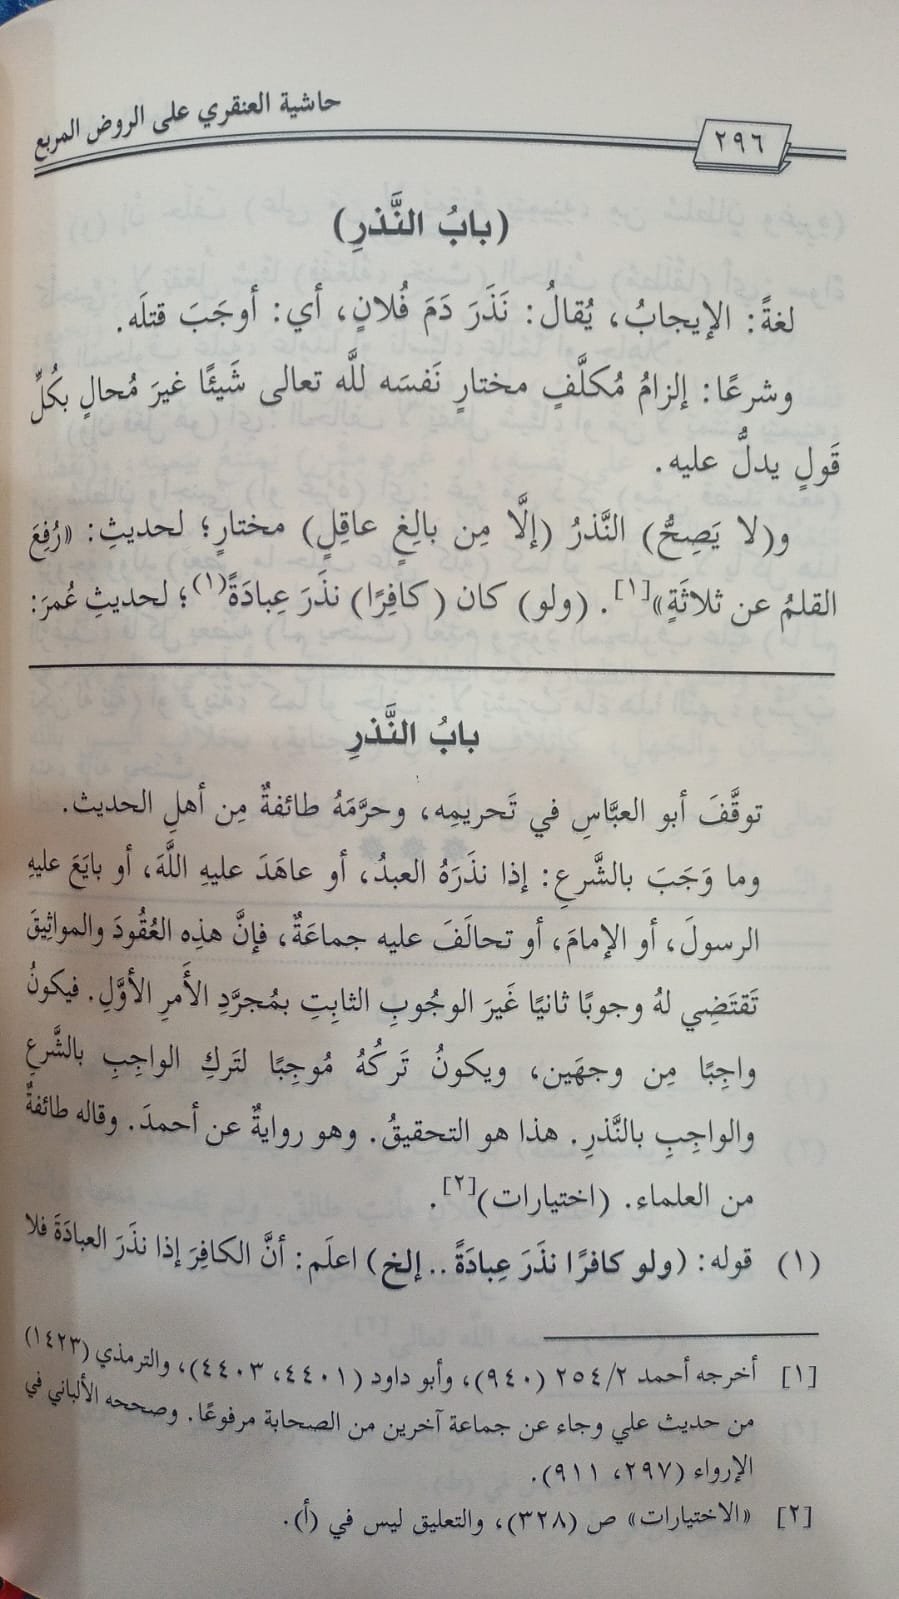 حاشية العنقري على الروض المربع
٢٩٦
(بابُ النَّذرِ)
لغةً: الإيجابُ، يُقالُ: نَذَرَ دَمَ فُلانٍ، أي: أوجَبَ قتلَه.
وشرعًا: إلزامُ مُكلَّفٍ مختارٍ نَفسَه للَّه تعالى شَيئًا غيرَ مُحالٍ بكُلِّ
قَولٍ يدلُّ عليه.
و(لا يَصِحُّ) النَّذرُ (إلَّا مِن بالِغٍ عاقِلٍ) مختارٍ؛ لحديثِ: «رُفِعَ
القلمُ عن ثلاثَةٍ»[١]. (ولو) كان (كافِرًا) نذَرَ عِبادَةً(١)؛ لحديثِ عُمرَ:
بابُ النَّذرِ
توقَّفَ أبو العبَّاسِ في تَحريمِه، وحرَّمَهُ طائفةٌ مِن أهلِ الحديث.
وما وَجَبَ بالشَّرعِ: إذا نذَرَهُ العبدُ، أو عاهَدَ عليهِ اللَّهَ، أو بايَعَ عليهِ
الرسولَ، أو الإمامَ، أو تحالَفَ عليه جماعَةٌ، فإنَّ هذِه العُقُودَ والمواثِيقَ
تَقتَضِي لهُ وجوبًا ثانيًا غَيرَ الوجُوبِ الثابِتِ بمُجرَّدِ الأَمرِ الأوَّلِ. فيكونُ
واجِبًا مِن وجهَين، ويكونُ تَركُهُ مُوجِبًا لتَركِ الواجِبِ بالشَّرعِ
والواجِبِ بالنَّذرِ. هذا هو التحقيقُ. وهو روايةٌ عن أحمدَ. وقاله طائفةٌ
من العلماء. (اختيارات)[٢].
(١) قوله: (ولو كافرًا نذَرَ عِبادَةً .. إلخ) اعلَم: أنَّ الكافِرَ إذا نذَرَ العبادَةَ فلا
[١] أخرجه أحمد ٢٥٤/٢ (٩٤٠)، وأبو داود (٤٤٠١، ٤٤٠٣)، والترمذي (١٤٢٣)
من حديث علي وجاء عن جماعة آخرين من الصحابة مرفوعًا. وصححه الألباني في
الإرواء (٢٩٧، ٩١١).
[٢] «الاختيارات» ص (٣٢٨)، والتعليق ليس في (أ).